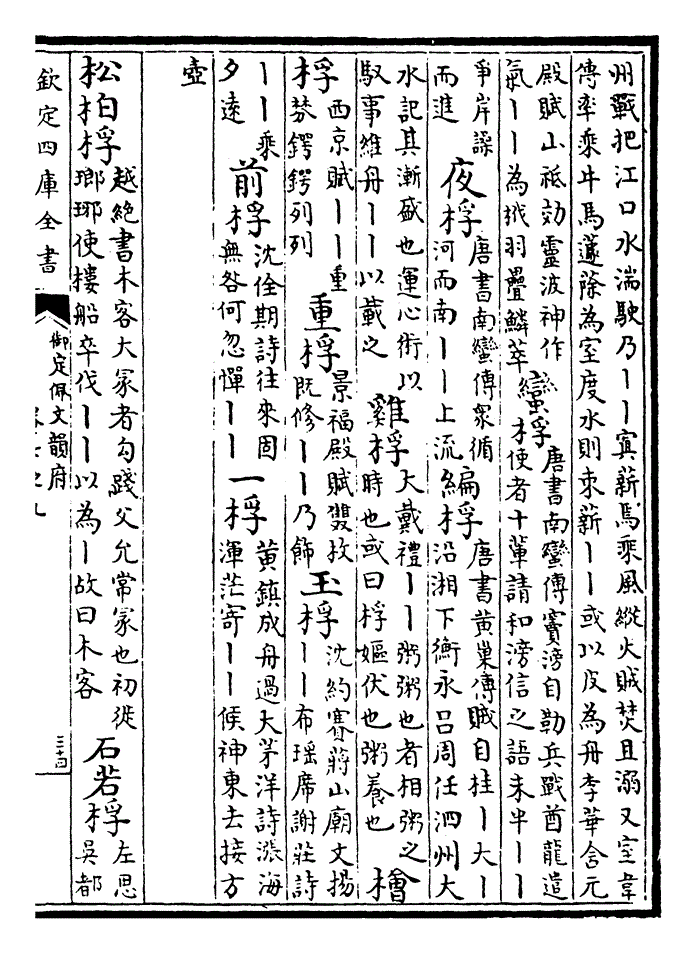 州蕺把江口水湍駛乃丨丨寘薪焉乘風縱火賊焚且溺又室韋
傳率乘牛馬蘧除為室度水則束薪丨丨或以皮為舟李華含元
殿賦山祗効靈波神作
氣丨丨為拔羽疊鱗萃
蠻桴
唐書南蠻傳竇滂自勒兵戰酋龍遣
使者十輩請和滂信之語未半丨丨
爭岸譟
而進
夜桴
唐書南蠻傳衆循
河而南丨丨上流
編桴
唐書黄巢傳賊自桂丨大丨
沿湘下衡永吕周任泗州大
水記其漸盛也運心術以
馭事維舟丨丨以載之
雞桴
大戴禮丨丨粥粥也者相粥之
時也或曰桴嫗伏也粥養也
檜
桴
西京賦丨丨重
棼鍔鍔列列
重桴
景福殿賦雙枚
既修丨丨乃飾
玉桴
沈約賽蔣山廟文揚
丨丨布瑶席謝莊詩
丨丨乘
夕遠
前桴
沈佺期詩往來固
無咎何忽憚丨丨
一桴
黄鎮成舟過大茅洋詩漲海
渾茫寄丨丨候神東去接方
壺
松柏桴
越絶書木客大冢者勾踐父允常冢也初徙
瑯琊使樓船卒伐丨丨以為丨故曰木客
石若桴
左思
吳都
欽定四庫全書
御定佩文韻府
三十四